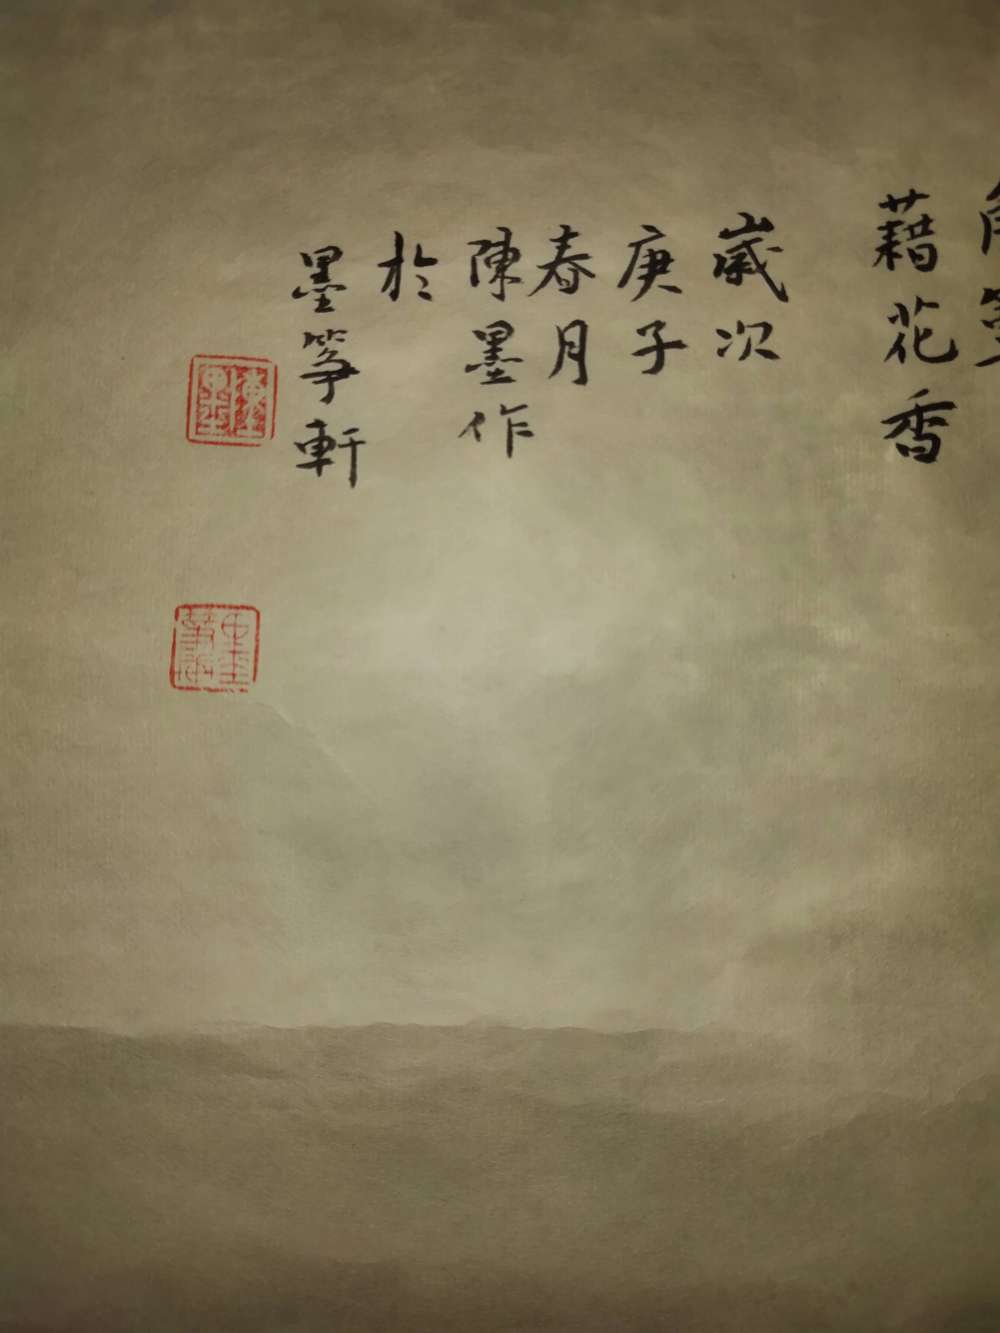 藉花香
歲次
庚子
春月
陳墨作
於
墨箏軒